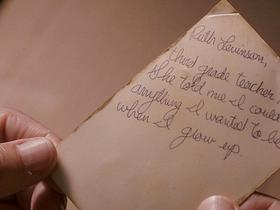 Ruth Levinson,
third grade teacher.
She told me I could
anything I wanted to be
when I grow up.